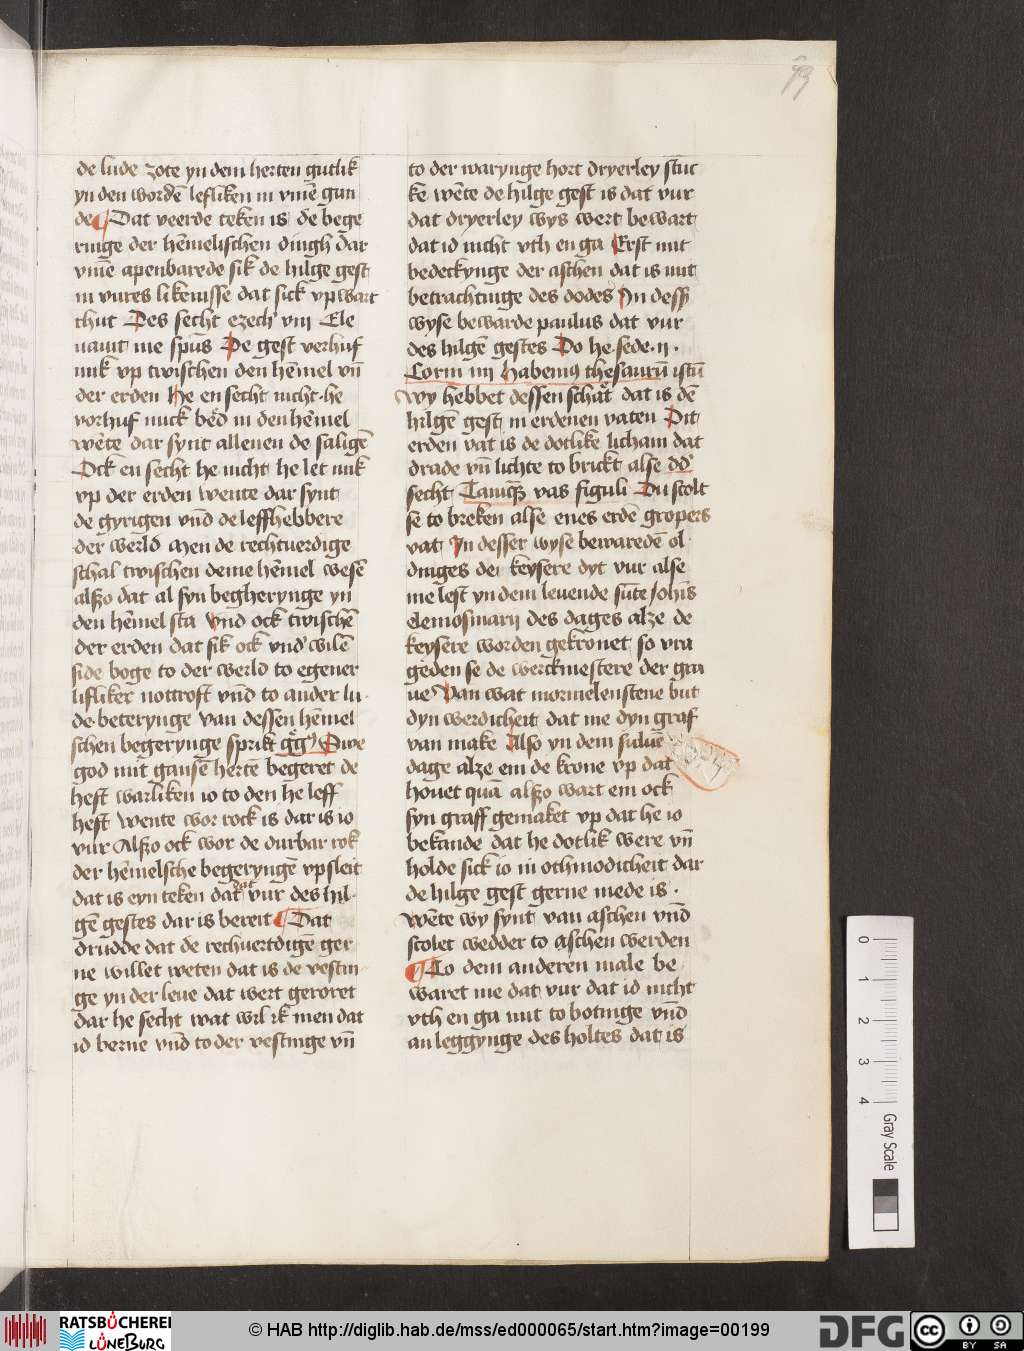 de lude zote yn dem herten gutlik
yn den wordē lefliken in vmē gun
de Dat veerde teken is de bege
ringe der hēmelischen dingh dar
vmē apenbarede sik de hilge gest
in vures likenisse dat sick vpwart
thut Des secht ezech viii Ele
uauit me spūs De gest verhuf
mik vp twischen den hēmel vñ
der erden He en secht nicht he
vorhuf mick bed in den hēmel
wēte dar synt allenen de saligē
Ock en secht he nicht he let mik
vp der erden wente dar synt
de gyrigen vnd de leffhebbere
der werld Men de rechtuerdige
schal twischen deme hēmel wesē
alszo dat al syn begherynge yn
den hēmel sta Vnd ock twischē
der erden dat sik ock vnd wilē
side boge to der werld to egener
lifliker nottroft vnd to ander lu
de beterynge van dessen hēmel
schen begerynge sprikt Swe
god mit gansē hertē begeret de
heft warliken io to den he leff
heft Wente wor rock is dar is io
vur Alszo ock wor de durbar rok
der hēmelsche begeryngē vpsleit
dat is eyn teken dat dat vur des hil
gē gestes dar is bereit Dat
drudde dat de rechuertdigē ger
ne willet weten dat is de vestin
ge yn der leue dat wert geroret
dar he secht wat wil ik men dat
id berne vnd to der vestinge vñ
to der warynge hort dryerley stuc
ke wēte de hilge gest is dat vur
dat dryerley wys wert bewart
dat id nicht vth en ga Erst mit
bedeckynge der aschen dat is mit
betrachtinge des dodes In dess
wyse bewarde paulus dat vur
des hilgē gestes Do he sede ii
Corin iiii Habemus thesaurū istū
Wy hebbet dessen schat dat is dē
hilgē gest in erdenen vaten Dit
erden vat is de dotlike licham dat
drade vñ lichte to brickt alse dd
secht Tamq̄ vas figuli Du scolt
se to breken alse enes erdē gropers
vat In desser wyse bewaredē ol
dinges dei keysere dyt vur alse
me lest yn dem leuende sūte Johīs
elemosinarii des dages alze de
keysere worden gekronet so vra
geden se de werckmestere der gra
ue Van wat mormelenstene but
dyn werdicheit dat me dyn graf
van make Also yn dem sulue
dage alze em de krone vp dat
houet quā alszo wart em ock
syn graff gemaket vp dat he io
bekande dat he dotlik were vñ
holde sick io in othmodicheit dar
de hilge gest gerne mede is
Wēte wy synt van aschen vnd
scolet wedder to aschen werden
To dem anderen male be
waret me dat vur dat id nicht
vth en ga mit to botinge vnd
an leggynge des holtes dat is
0 1 2 3 4
Gray Scale
RATSBÜCHEREI
LÜNEBURG
© HAB http://diglib.hab.de/mss/ed000065/start.htm?image=00199
DFG
cc
BY SA